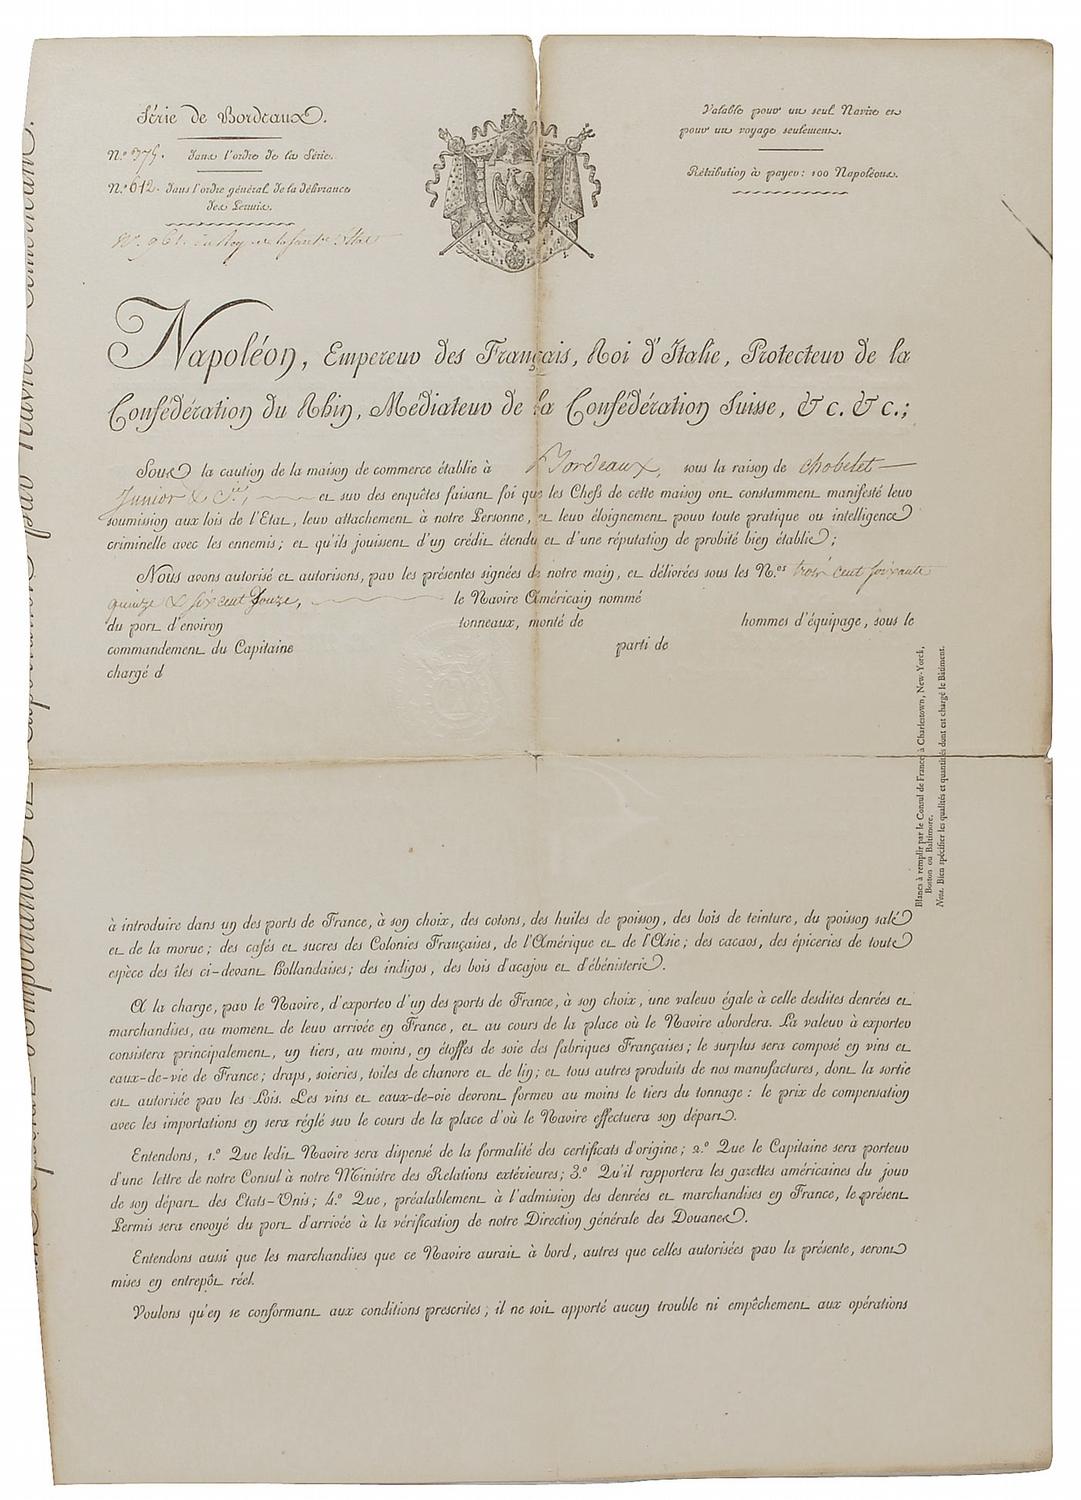 Série de Bordeaux.
N.º 375. dans l'ordre de la Série.
N.º 612. dans l'ordre général de la délivrance
des Permis.
Valable pour un seul Navire et
pour un voyage seulement.
Rétribution à payer : 100 Napoléons.
Napoléon, Empereur des Français, Roi d'Italie, Protecteur de la
Confédération du Rhin, Médiateur de la Confédération Suisse, &c. &c.;
Sous la caution de la maison de commerce établie à Bordeaux, sous la raison de Chobelet
Junior & Cie, et sur des enquêtes faisant foi que les Chefs de cette maison ont constamment manifesté leur
soumission aux lois de l'Etat, leur attachement à notre Personne, et leur éloignement pour toute pratique ou intelligence
criminelle avec les ennemis ; et qu'ils jouissent d'un crédit étendu et d'une réputation de probité bien établie ;
Nous avons autorisé et autorisons, par les présentes signées de notre main, et délivrées sous les N.os trois cent soixante
quinze & six cent douze, le Navire Américain nommé
du port d'environ tonneaux, monté de hommes d'équipage, sous le
commandement du Capitaine parti de
chargé d
Blancs à remplir par le Consul de France à Charlestown, New-Yorck,
Boston ou Baltimore.
Nota. Bien spécifier les qualités et quantités dont est chargé le Bâtiment.
à introduire dans un des ports de France, à son choix, des cotons, des huiles de poisson, des bois de teinture, du poisson salé
et de la morue ; des cafés et sucres des Colonies Françaises, de l'Amérique et de l'Asie ; des cacaos, des épiceries de toute
espèce des îles ci-devant Hollandaises ; des indigos, des bois d'acajou et d'ébénisterie.
A la charge, par le Navire, d'exporter d'un des ports de France, à son choix, une valeur égale à celle desdites denrées et
marchandises, au moment de leur arrivée en France, et au cours de la place où le Navire abordera. La valeur à exporter
consistera principalement, un tiers, au moins, en étoffes de soie des fabriques Françaises ; le surplus sera composé en vins et
eaux-de-vie de France ; draps, soieries, toiles de chanvre et de lin ; et tous autres produits de nos manufactures, dont la sortie
est autorisée par les Lois. Les vins et eaux-de-vie devront former au moins le tiers du tonnage : le prix de compensation
avec les importations en sera réglé sur le cours de la place d'où le Navire effectuera son départ.
Entendons, 1.º Que ledit Navire sera dispensé de la formalité des certificats d'origine ; 2.º Que le Capitaine sera porteur
d'une lettre de notre Consul à notre Ministre des Relations extérieures ; 3.º Qu'il rapportera les gazettes américaines du jour
de son départ des Etats-Unis ; 4.º Que, préalablement à l'admission des denrées et marchandises en France, le présent
Permis sera envoyé du port d'arrivée à la vérification de notre Direction générale des Douanes.
Entendons aussi que les marchandises que ce Navire aurait à bord, autres que celles autorisées par la présente, seront
mises en entrepôt réel.
Voulons qu'en se conformant aux conditions prescrites ; il ne soit apporté aucun trouble ni empêchement aux opérations